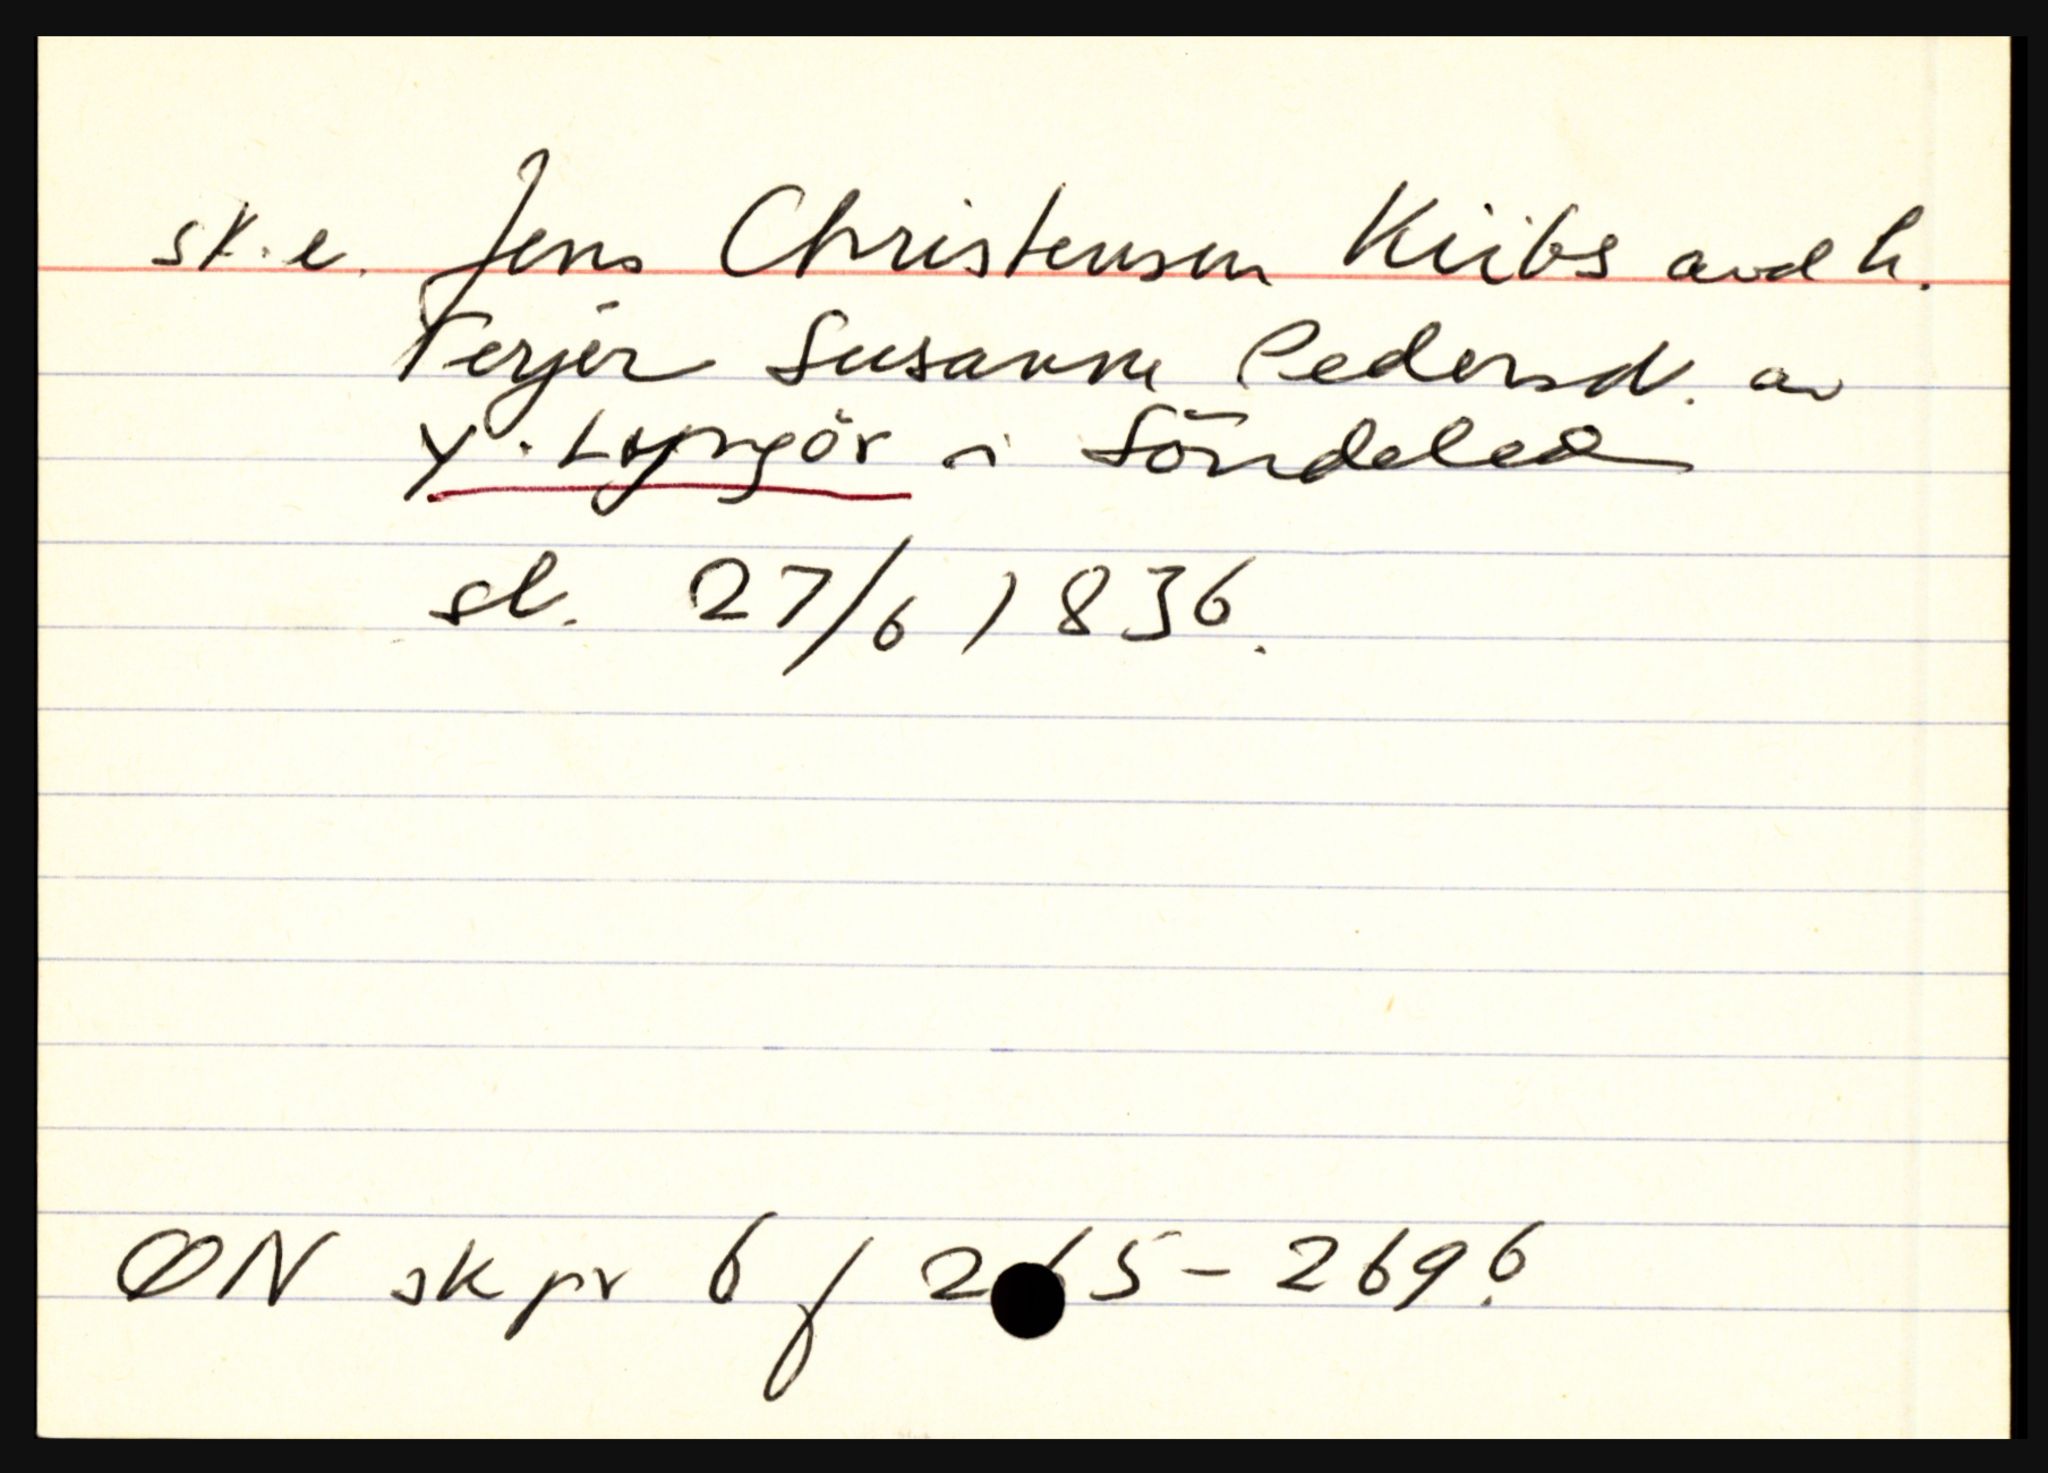 sk.e. Jens Christensen Kiibs avd h.
Terjer Susanne Pedersd. av
Y. Lyngör i Söndeled
sl. 27/6 1836.
ØN sk pr 6 f 265 - 269 b